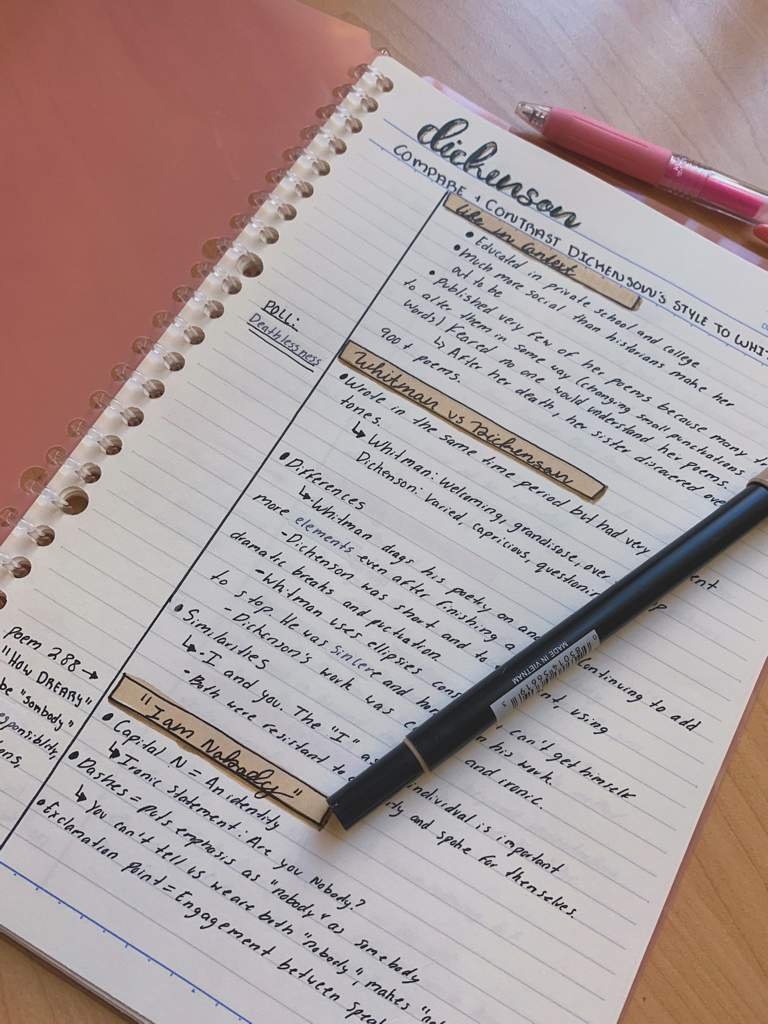 dickenson
COMPARE + CONTRAST DICKENSON'S STYLE TO WHIT
Life in Context
• Educated in private school and college
• Much more social than historians make her
out to be
• Published very few of her poems because many
to alter them in some way (changing small punctuations
words) Feared no one would understand her poems.
↳ After her death, her sister disacred over
900+ poems.
POLL:
Deathlessness
Whitman vs Dickenson
• Wrote in the same time period but had very
tones.
↳ Whitman: Welcoming, grandisose, over
Dickenson: Varied, capricious, question
• Differences
↳ Whitman drags his poetry on and continuing to add
more elements even after finishing a
- Dickenson was short and to using
dramatic breaks and puctuation
- Whitman uses ellipsies can't get himself
to stop. He was sincere and in his work.
- Dickenson's work was and ironic.
• Similaridies
↳ I and You. The "I" as individual is important
- Both were resistant to and spoke for themselves.
poem 288 →
"HOW DREARY"
be "sombody"
responsibility,
"I am Nobody"
• Capital N = An identity
↳ Ironic statement: Are you Nobody?
• Dashes = puts emphasis as "nobody" as somebody
↳ You can't tell us we are both "nobody", makes
• Exclamation Point = Engagement between
MADE IN VIETNAM